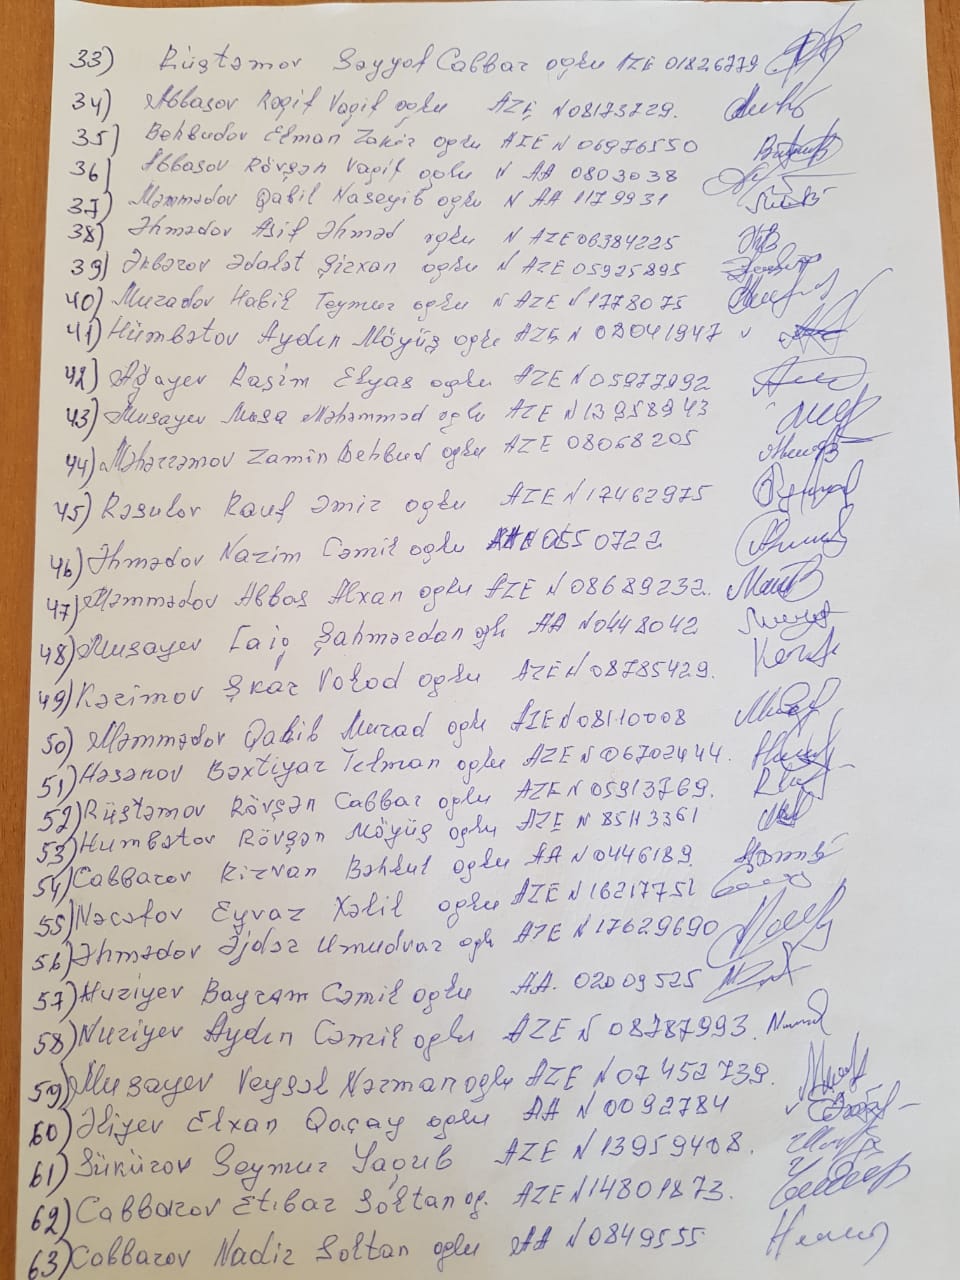 33) Rüstəmov Səyyof Cabbar oğlu AZE 01826779
34) Abbasov Raqif Vaqif oglu AZE N08173729.
35) Behbudov Elman Zakir oglu AZE N 06976550
36) Abbasov Rövşən Vaqif oglu N AA 0803038
37) Məmmədov Qabil Naseyib oglu N AA 1179931
38) Əhmədov Asif Əhməd oglu N AZE06384225
39) Əkbərov Ədalət Şirxan oglu N AZE 05925895
40) Muradov Habil Teymur oglu N AZE N1778075
41) Hümbətov Aydın Möyüş oglu AZE N 08041947
42) Ağayev Rasim Elyas oglu AZE N 05977992
43) Musayev Musa Məhəmməd oglu AZE N 13958943
44) Məhərrəmov Zamin Behbud oglu AZE 08068205
45) Rəsulov Rauf Əmir oglu AZE N 17462975
46) Əhmədov Nazim Cəmil oglu 0550722
47) Məmmədov Abbas Alxan oglu AZE N08689232.
48) Musayev Şahmərdan ogl AA N0448042
49) Kərimov oglu AZE N08785429.
50) Məmmədov Qabil Murad oglu AZE N08110008
51) Həsənov Bəxtiyar Telman oglu AZE N06702444.
52) Rüstəmov Rövşən Cabbar oglu AZE N05913769.
53) Humbətov Rövşən Möyüş oglu AZE N 85113361
54) Cabbarov Rizvan Bəhlul oglu AA N0446189.
55) Nəcəfov Eyvaz Xəlil oglu AZE N16217751
56) Əhmədov Əjdər Umudvar ogl AZE N 17629690
57) Nuriyev Bayram Cəmil oglu AA. 02009525
58) Nuriyev Aydın Cəmil oglu AZE N 08787993.
59) Musayev Veysəl Nərman oglu AZE N 07452739.
60) Əliyev Elxan Qaçay oglu AA N0092784
61) Şükürov Seymur Yaqub AZE N13959408.
62) Cabbarov Etibar Soltan og. AZE N14801873.
63) Cabbarov Nadir Soltan oglu AA N0849555